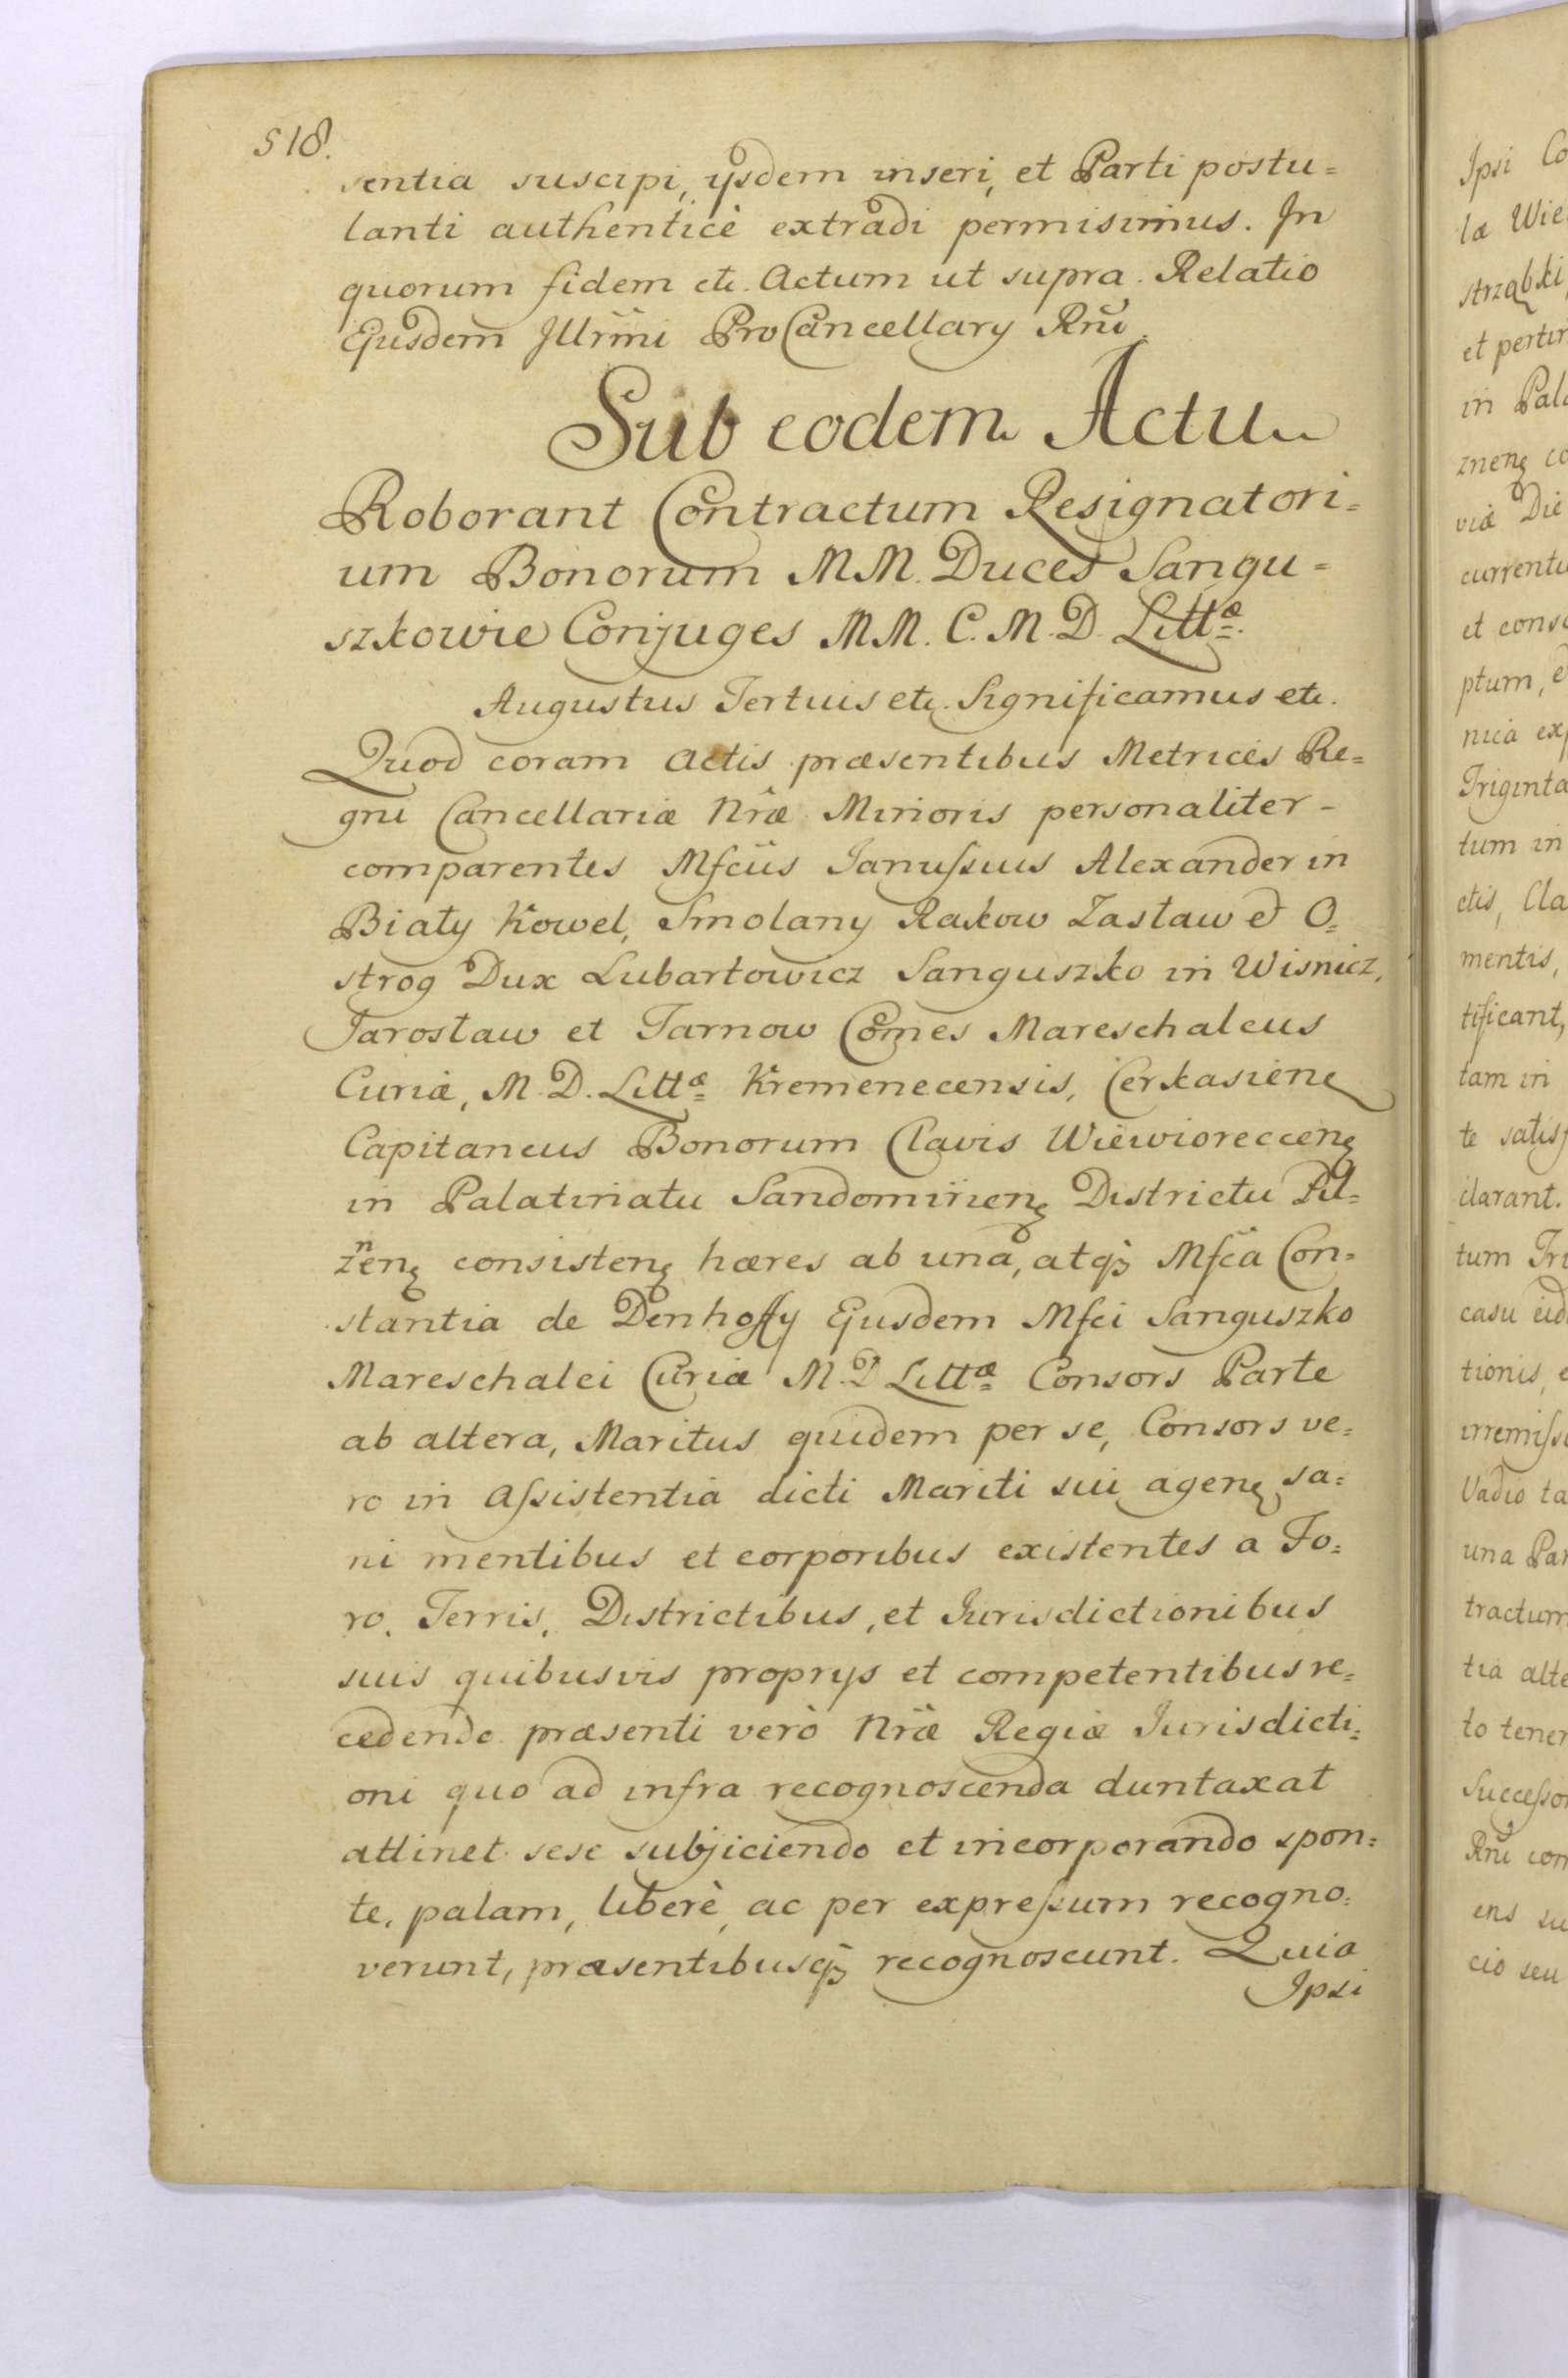 518.
sentia suscipi, ijsdem inseri, et Parti postu=
lanti authenticè extradi permisimus. In
quorum fidem etc. Actum ut supra. Relatio
Ejusdem Illrmi ProCancellary Rni.
Sub eodem Actu
Roborant Contractum Resignatori=
um Bonorum MM. Duces Sangu=
szkowie Conjuges MM. C. M. D. Littæ.
Augustus Tertuis etc. Significamus etc.
Quod coram Actis præsentibus Metrices Re=
gni Cancellariæ Nræ Minoris personaliter -
comparentes Mfcus Januſsius Alexander in
Biały Kowel, Smolany Rakow Zasław et O=
strog Dux Lubartowicz Sanguszko in Wisnicz,
Jarosław et Tarnow Comes Mareschaleus
Curiæ, M. D. Littæ Kremenecensis, Cerkasienę
Capitaneus Bonorum Clavis Wiewioreccenę
in Palatinatu Sandomirienę Districtu Pil=
znenę consistenę hæres ab una, atqȝ Mfca Con=
stantia de Denhoffy Ejusdem Mfci Sanguszko
Mareschalei Curiæ M. D Littæ Consors Parte
ab altera, Maritus quidem per se, Consors ve=
ro in Aſsistentia dicti Mariti sui agenę sa=
ni mentibus et corporibus existentes a Fo=
ro, Terris, Districtibus, et Jurisdictionibus
suis quibusvis proprijs et competentibus re=
cedendo præsenti verò Nræ Regiæ Jurisdicti=
oni quo ad infra recognoscenda duntaxat
attinet sese subjiciendo et incorporando spon=
te, palam, liberè, ac per expreſsum recogno=
verunt, præsentibusqȝ recognoscunt. Quia
Ipsi
Ipsi Co
læ Wie
strząbki
et pertin
in Pala
znenę co
viæ Die
currentu
et consc
ptum, e
nica exp
Triginta
tum in
ctis, Cla
mentis,
tificant,
tam in
te satisf
clarant.
tum Tri
casu eid
tionis, e
irremiſsi
Vadio ta
una Par
tractum
tia alte
to tener
Succeſsor
Rni com
ens su
cio seu